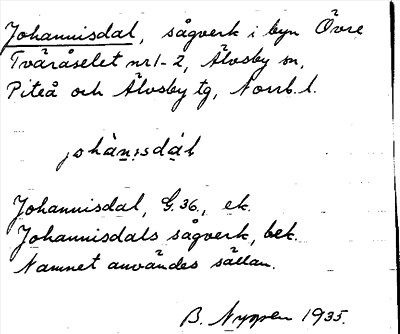 Johannisdal, sågverk i byn Övre
Tväråselet nr 1-2, Älvsby sn,
Piteå och Älvsby tg, Norrb. l.
johànisdàl
Johannisdal, G. 36, ek.
Johannisdals sågverk, bek.
Namnet användes sällan.
B. 1935.